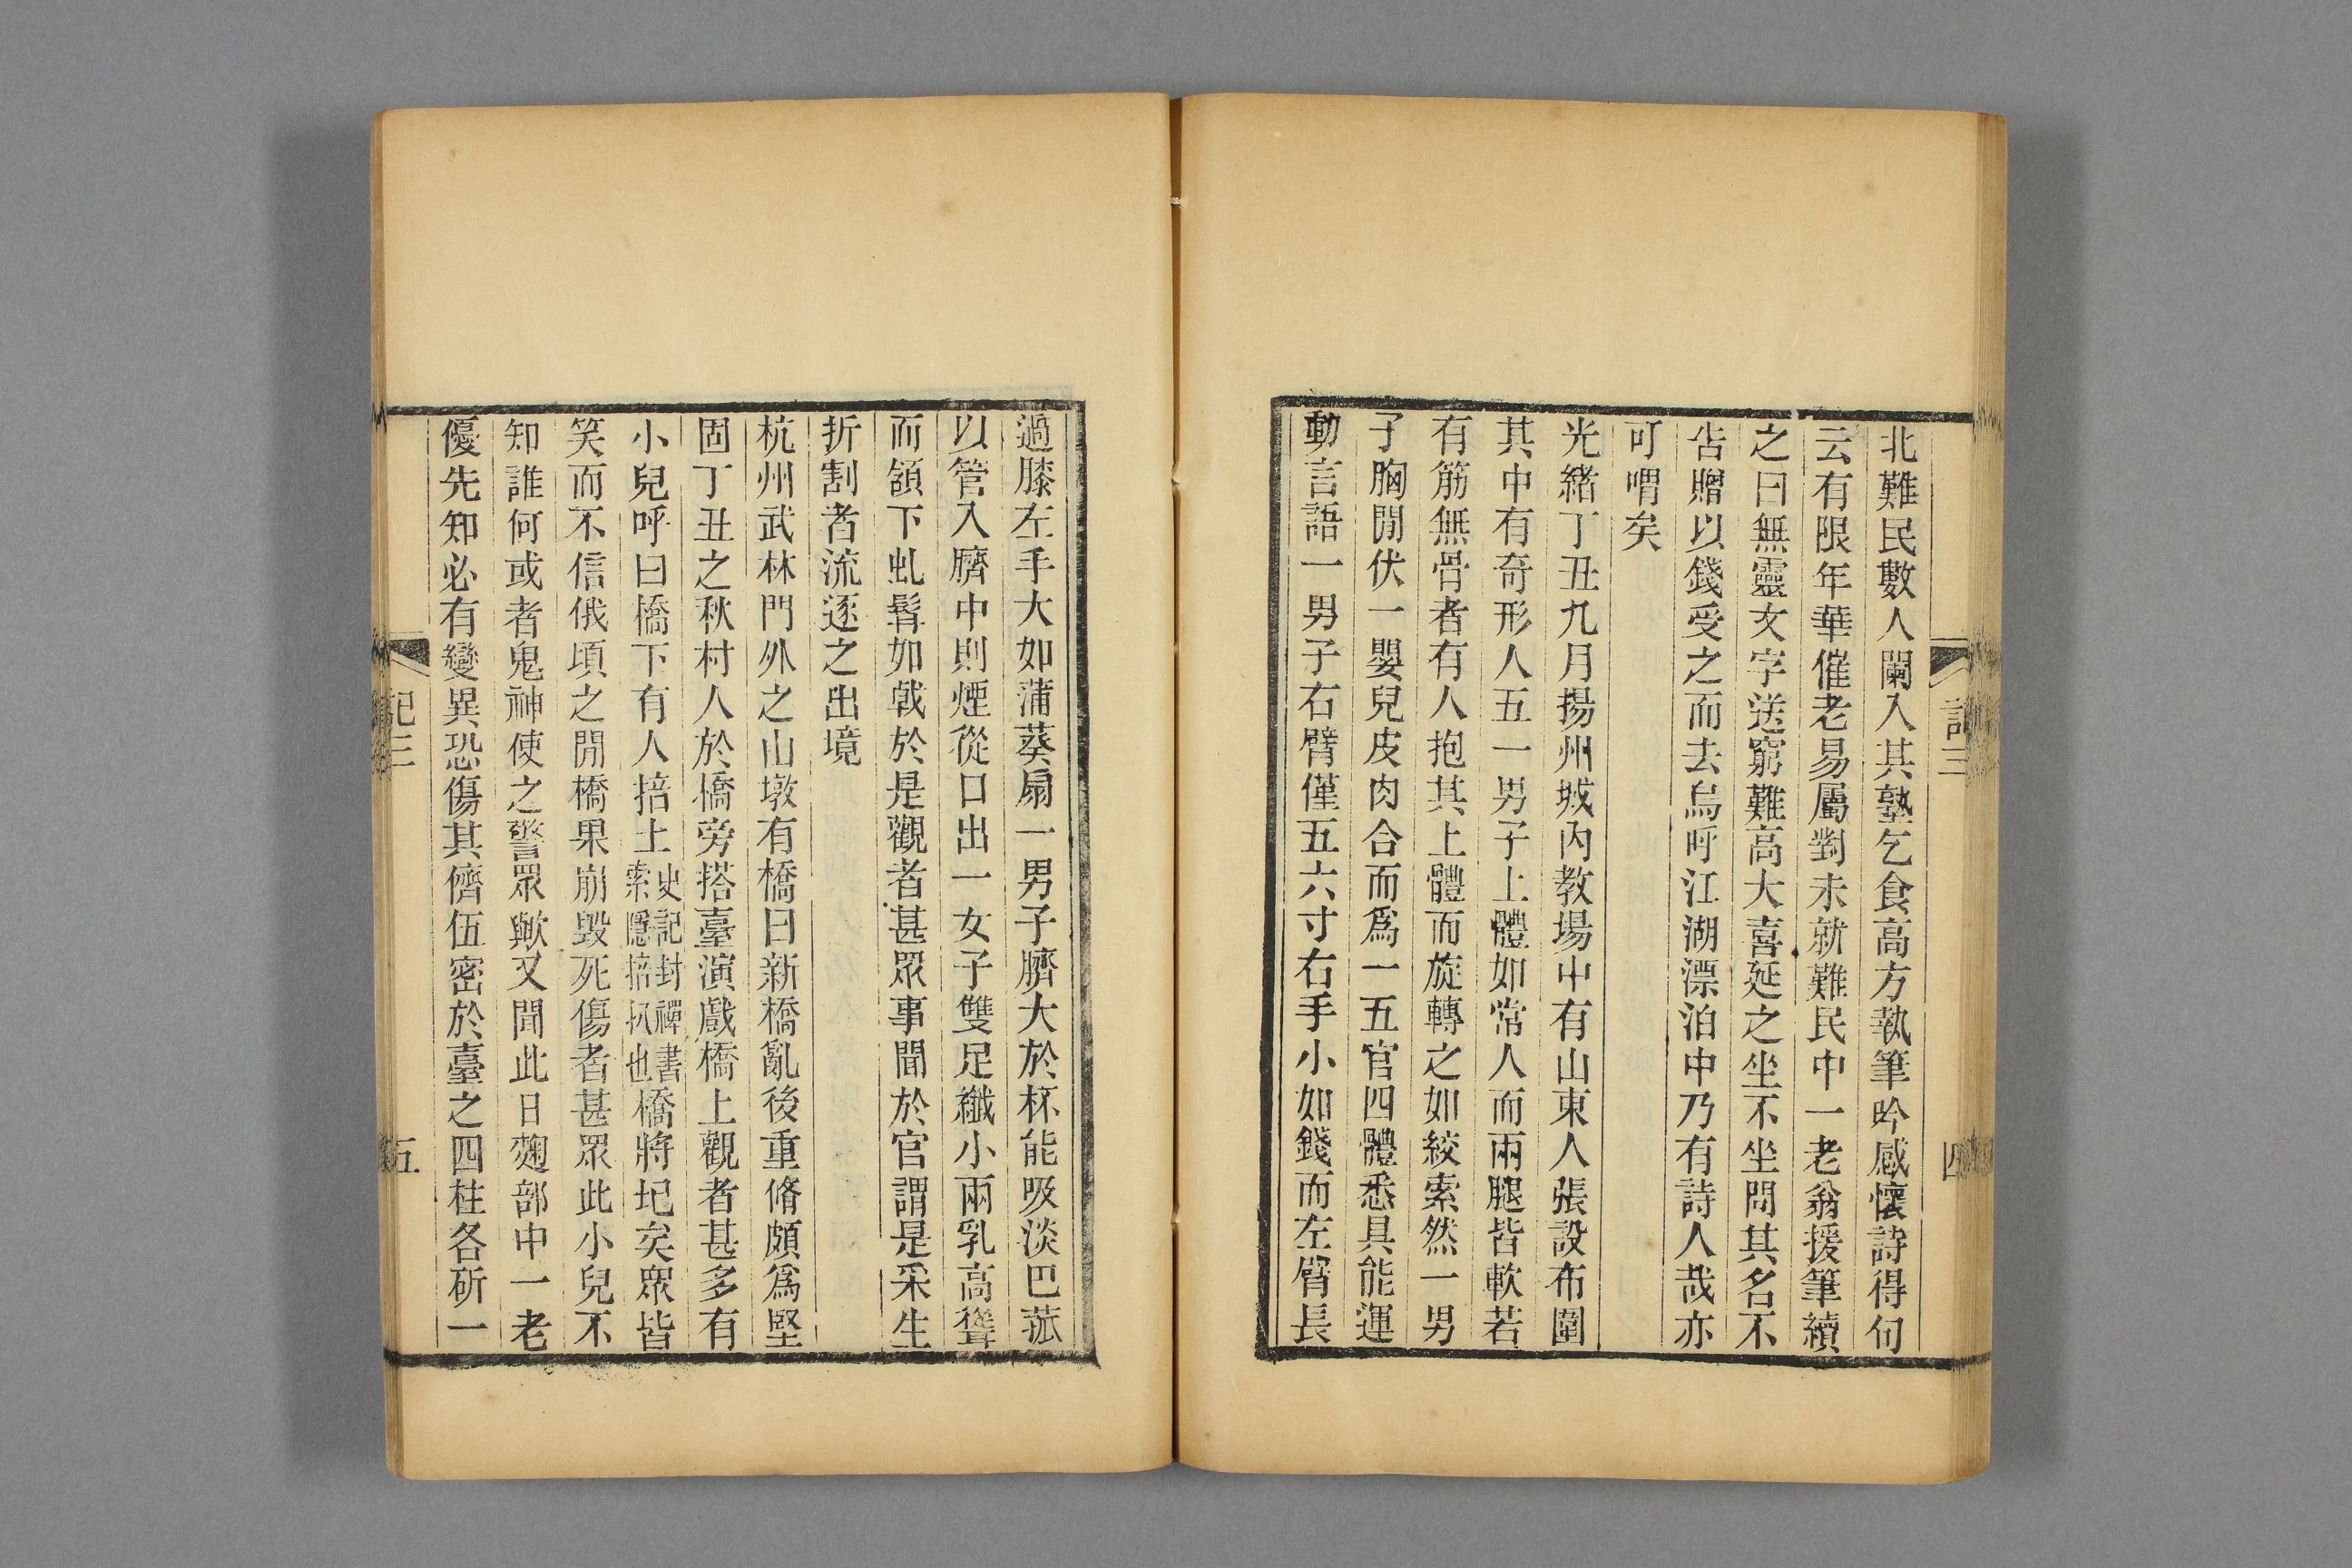 北難民數人闌入其塾乞食高方執筆吟感懷詩得句
云有限年華催老易屬對未就難民中一老翁援筆續
之曰無靈文字送窮難高大喜延之坐不坐問其名不
告贈以錢受之而去烏呼江湖漂泊中乃有詩人哉亦
可喟矣
光緒丁丑九月揚州城內教場中有山東人張設布圍
其中有奇形人五一男子上體如常人而兩腿皆軟若
有筋無骨者有人抱其上體而旋轉之如絞索然一男
子胸閒伏一嬰兒皮肉合而爲一五官四體悉具能運
動言語一男子右臂僅五六寸右手小如錢而左臂長
過膝左手大如蒲葵扇一男子臍大於杯能吸淡巴菰
以管入臍中則煙從口出一女子雙足纖小兩乳高聳
而頷下虬髯如戟於是觀者甚眾事聞於官謂是采生
折割者流逐之出境
杭州武林門外之山墩有橋曰新橋亂後重脩頗爲堅
固丁丑之秋村人於橋旁搭臺演戲橋上觀者甚多有
小兒呼曰橋下有人掊土史記封禪書索隱掊扒也橋將圮矣眾皆
笑而不信俄頃之閒橋果崩毀死傷者甚眾此小兒不
知誰何或者鬼神使之警眾歟又聞此日麹部中一老
優先知必有變異恐傷其儕伍密於臺之四柱各斫一
記三
五